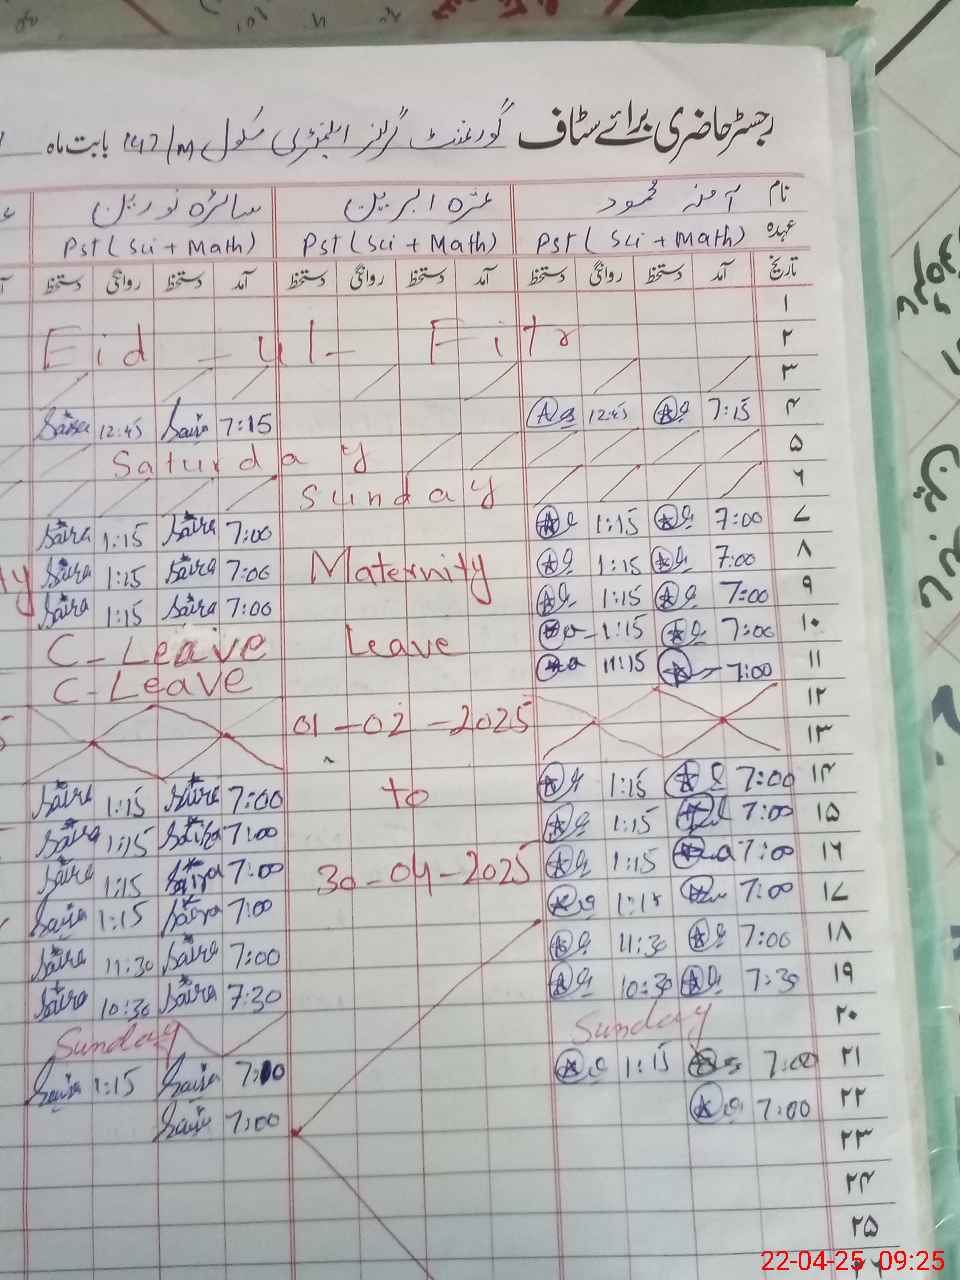 رجسٹر حاضری برائے سٹاف گورنمنٹ گرلز ایلیمنٹری سکول 147/M بابت ماہ
نام آمنہ محمود عنزہ امبرین سائرہ نورین
عہدہ Pst ( Sci + Math) Pst ( Sci + Math) Pst ( Sci + Math)
تاریخ آمد دستخط روانگی دستخط آمد دستخط روانگی دستخط آمد دستخط روانگی دستخط
۱
۲ Eid - ul - Fitr
۳
۴ 7:15 12:45 7:15 Saira 12:45 Saira
۵ Saturday
۶ Sunday
۷ 7:00 1:15 7:00 Saira 1:15 Saira
۸ 7:00 1:15 Maternity 7:00 Saira 1:15 Saira
۹ 7:00 1:15 7:00 Saira 1:15 Saira
۱۰ 7:00 1:15 Leave C-Leave
۱۱ 7:00 11:15 C-Leave
۱۲ 01-02-2025
۱۳
۱۴ 7:00 1:15 to 7:00 Saira 1:15 Saira
۱۵ 7:00 1:15 7:00 Saira 1:15 Saira
۱۶ 7:00 1:15 30-04-2025 7:00 Saira 1:15 Saira
۱۷ 7:00 1:15 7:00 Saira 1:15 Saira
۱۸ 7:00 11:30 7:00 Saira 11:30 Saira
۱۹ 7:30 10:30 7:30 Saira 10:30 Saira
۲۰ Sunday Sunday
۲۱ 7:00 1:15 7:00 Saira 1:15 Saira
۲۲ 7:00 7:00 Saira
۲۳
۲۴
۲۵
22-04-25 09:25